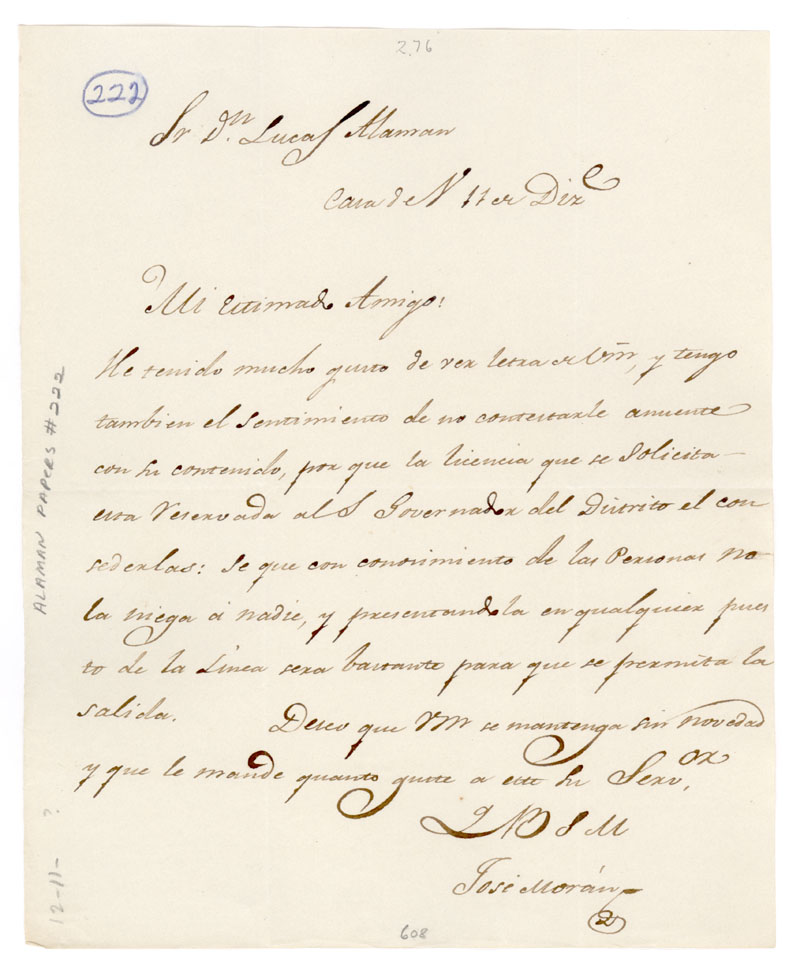 276
222
Sr. Dn. Lucas Alaman
Casa de N 11 de Dize
Mi estimado Amigo:
He tenido mucho gusto de ver letra de Vm, y tengo
tambien el sentimiento de no contestarle anuente
con su contenido, por que la licencia que se solicita
esta reservada al S Governador del Distrito el con
sederlas: se que con conosimiento de las Personas no
la niega á nadie, y presentandola en qualquier pues
to de la Linea sera bastante para que se permita la
salida. Deseo que Vm se mantenga sin novedad
y que le mande quanto guste a este su Servor.
Q B S M
José Morán
2
608
ALAMAN PAPERS #222
12-11- ?